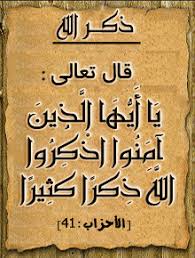 ذكر الله
قال تعالى :
يَا أَيُّهَا الَّذِينَ
آمَنُوا اذْكُرُوا
اللَّهَ ذِكْرًا كَثِيرًا
[الأحزاب:41]